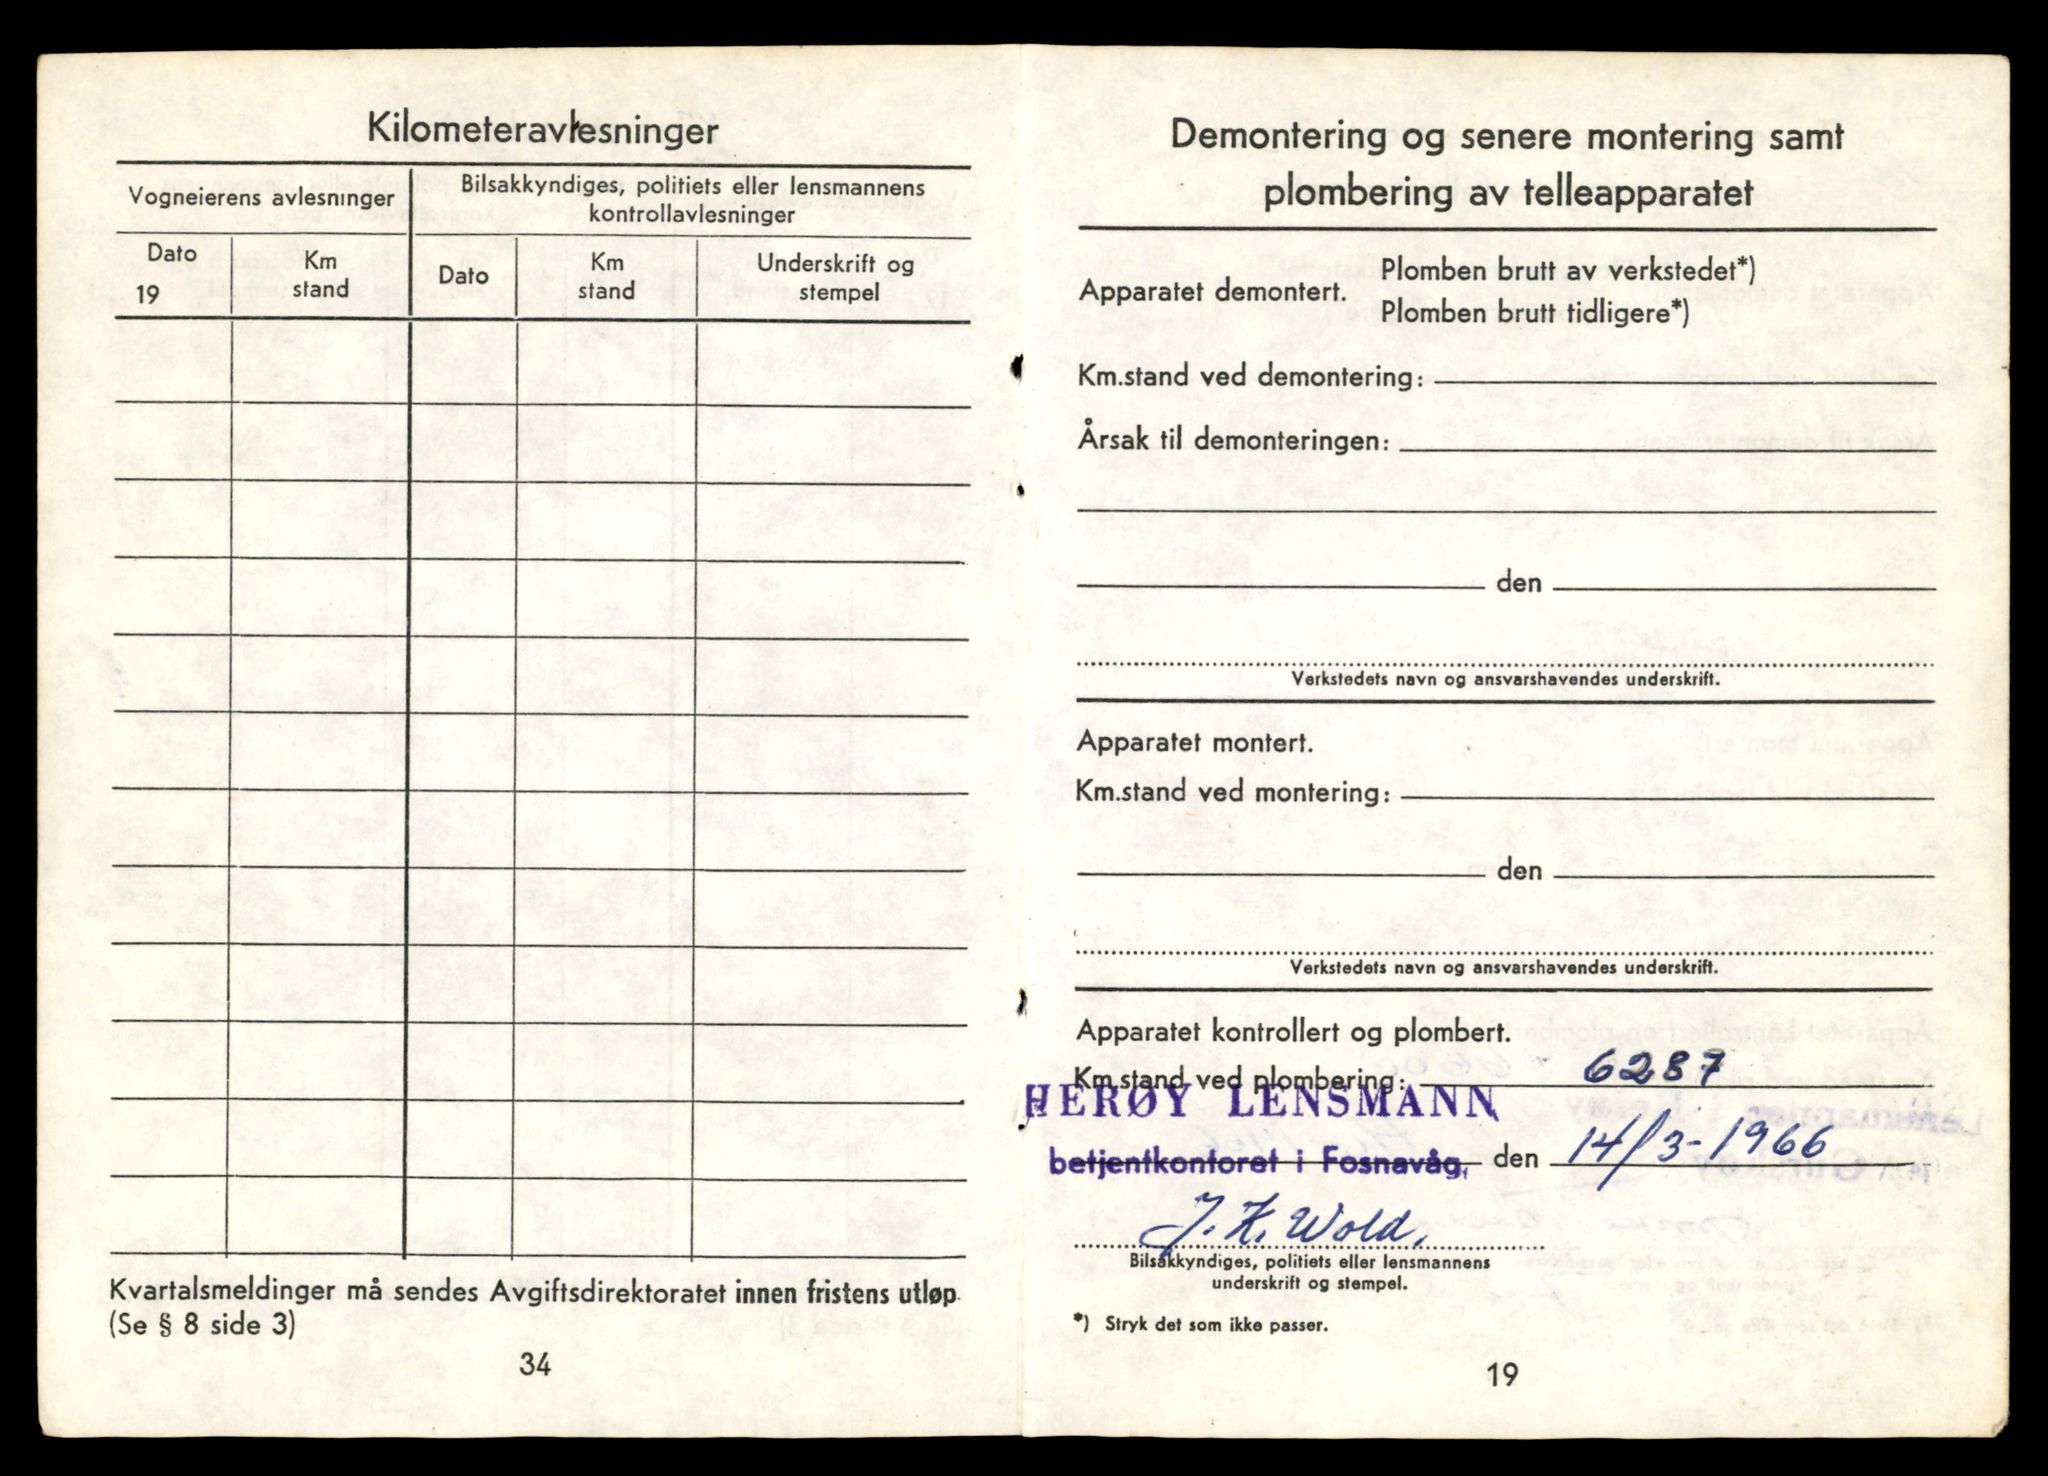 Kilometeravlesninger
Vogneierens avlesninger
Bilsakkyndiges, politiets eller lensmannens
kontrollavlesninger
Dato
19
Km
stand
Dato
Km
stand
Underskrift og
stempel
Kvartalsmeldinger må sendes Avgiftsdirektoratet innen fristens utløp
(Se § 8 side 3)
34
Demontering og senere montering samt
plombering av telleapparatet
Apparatet demontert.
Plomben brutt av verkstedet*)
Plomben brutt tidligere*)
Km.stand ved demontering:
Årsak til demonteringen:
den
Verkstedets navn og ansvarshavendes underskrift.
Apparatet montert.
Km.stand ved montering:
den
Verkstedets navn og ansvarshavendes underskrift.
Apparatet kontrollert og plombert.
Km.stand ved plombering: 6287
HERØY LENSMANN
betjentkontoret i Fosnavåg, den 14/3-1966
J. K. Wold.
Bilsakkyndiges, politiets eller lensmannens
underskrift og stempel.
*) Stryk det som ikke passer.
19